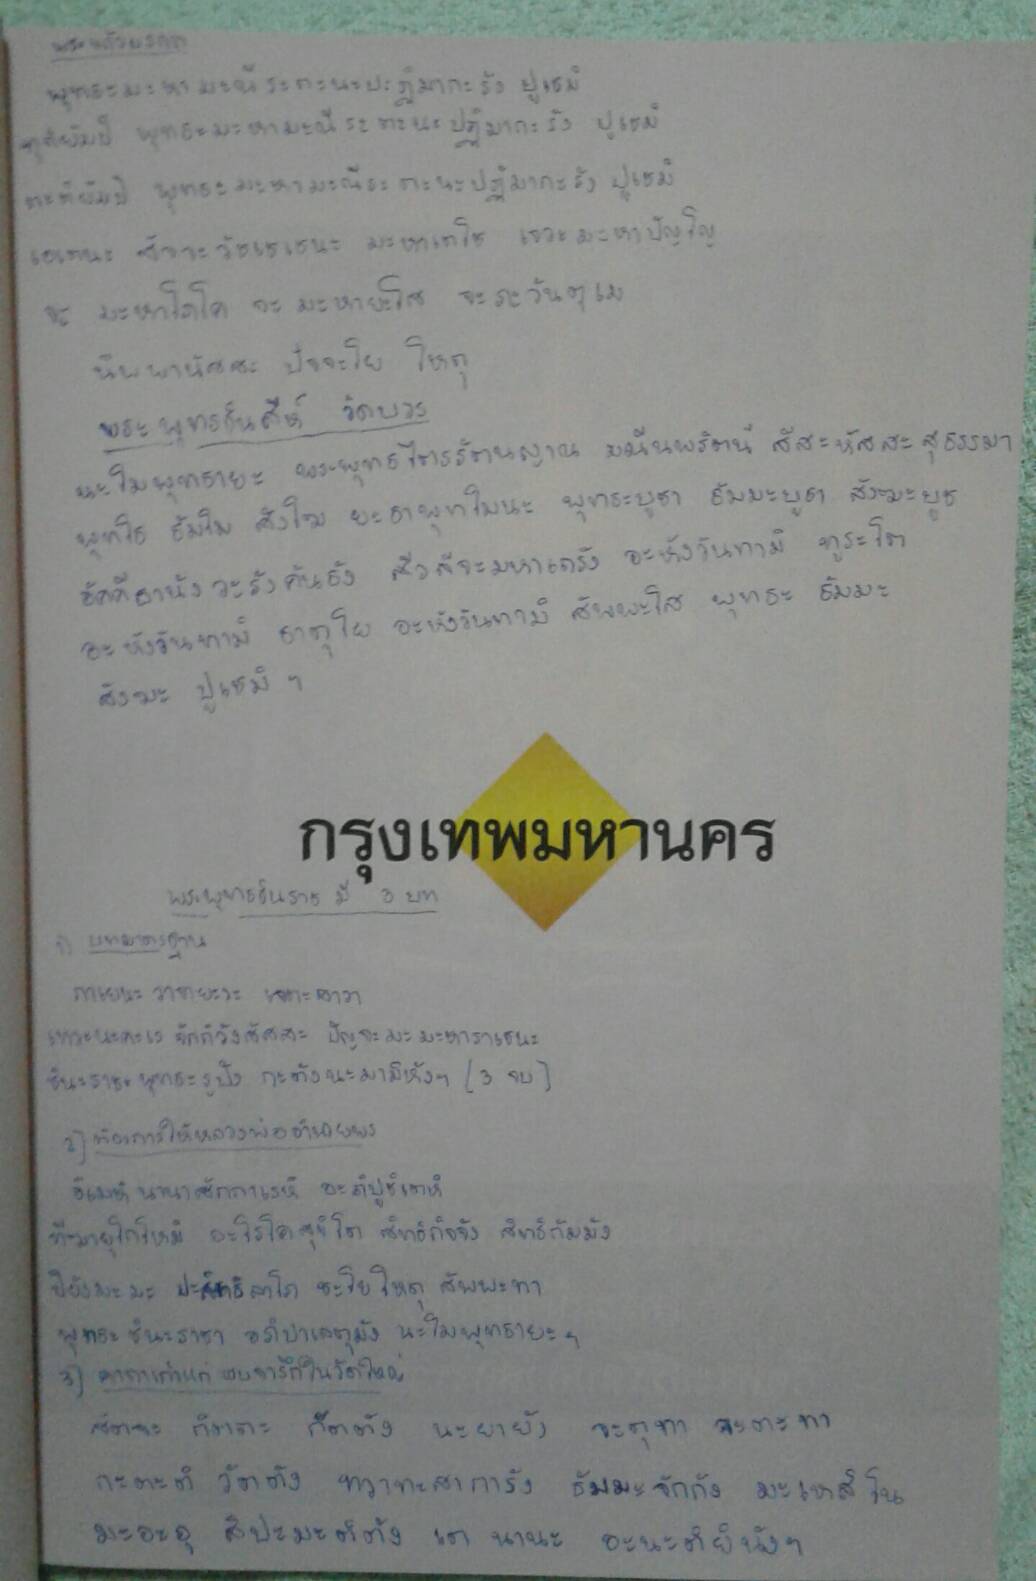 พระแก้วมรกต
พุทธะมะหามะณีระตะนะปะฏิมากะรัง ปูเชมิ
ทุติยัมปิ พุทธะมะหามะณีระตะนะปฏิมากะรัง ปูเชมิ
ตะติยัมปิ พุทธะมะหามะณีระตะนะปฏิมากะรัง ปูเชมิ
เอเตนะ สัจจะวัชเชเชนะ มะหาเตโช เจวะมะหาปัญโญ
จะ มะหาโภโค จะ มะหายะโส จะภะวันตุเม
นิพพานัสสะ ปัจจะโย โหตุ
พระพุทธชินสีห์ วัดบวร
นะโมพุทธายะ พระพุทธไตรรัตนญาณ มณีนพรัตน์ สีสะหัสสะสุธรรมา
พุทโธ ธัมโม สังโฆ ยะธาพุทโมนะ พุทธะบูชา ธัมมะบูชา สังฆะบูช
อัคคีธานังวะรังคันธัง สีวลีจะมหาเถรัง อะหังวันทามิ ทูระโต
อะหังวันทามิ ธาตุโย อะหังวันทามิ สัพพะโส พุทธะ ธัมมะ
สังฆะ ปูเชมิ ฯ
กรุงเทพมหานคร
พระพุทธชินราช มี 3 บท
1) บทมาตรฐาน
กาเยนะ วาจายะวะ เจตะสาวา
เทวะนะคะเร จักกิวังสัสสะ ปัญจะมะ มะหาราเชนะ
ชินะราชะพุทธะรูปัง กะตังนะมามิหังฯ (3 จบ)
2) ต้องการให้หลวงพ่ออำนวยพร
อิเมหิ นานาสักกาเรหิ อะภิปูชิเตหิ
ทีฆายุโกโหมิ อะโรโคสุขิโต สิทธิกิจจัง สิทธิกัมมัง
ปิยังมะมะ ปะสิทธิลาโภ ชะโยโหตุ สัพพะทา
พุทธะ ชินะราชา อภิปาเลตุมัง นะโมพุทธายะฯ
3) คาถาเก่าแก่ พบจารึกในวัดใหญ่
สัตจะ กิตตะ กัตตัง นะยายัง จะตุทา จะตะทา
กะตะติ วัตตัง ทวาทะสาการัง ธัมมะจักกัง มะเหสิโน
มะอะอุ สิปะมะติตัง เต นานะ อะนะติยินังฯ